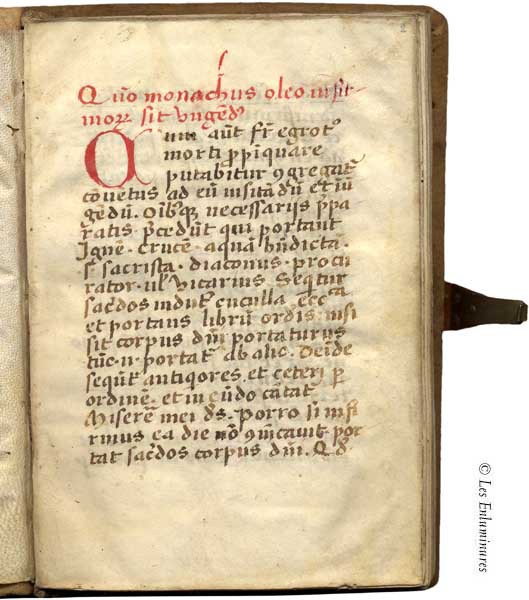 2
Quō monachus oleo infir
moꝝ sit ungēdꝰ
Qum aūt fr̄ egrotꝰ
morti ꝓpīquare
putabitur ꝯgregatꝰ
cōvētus ad eū visitādū et iū
gēdū. Oībꝰqꝫ necessarijs p̄pa
ratis p̄cedūt qui portant
Ignē. crucē. aquā bn̄dictā.
sꝫ sacrista. diaconus. procu
rator. ul̓ vicarius. Seq̄tur
sac̄dos indutꝰ cuculla
et portans librū ordīs. nisi
sit corpus dn̄i portaturus
tūc .n. portatꝰ ab alio. Deīde
sequūt antiqores. et ceteri ꝑ
ordinē. et in eūdo cātāt
Miserē mei dꝰs. Porro si īfi
rmus ea die nō ꝯīcavit por
tat sac̄dos corpus dn̄i. Qd̓
© Les Enluminures